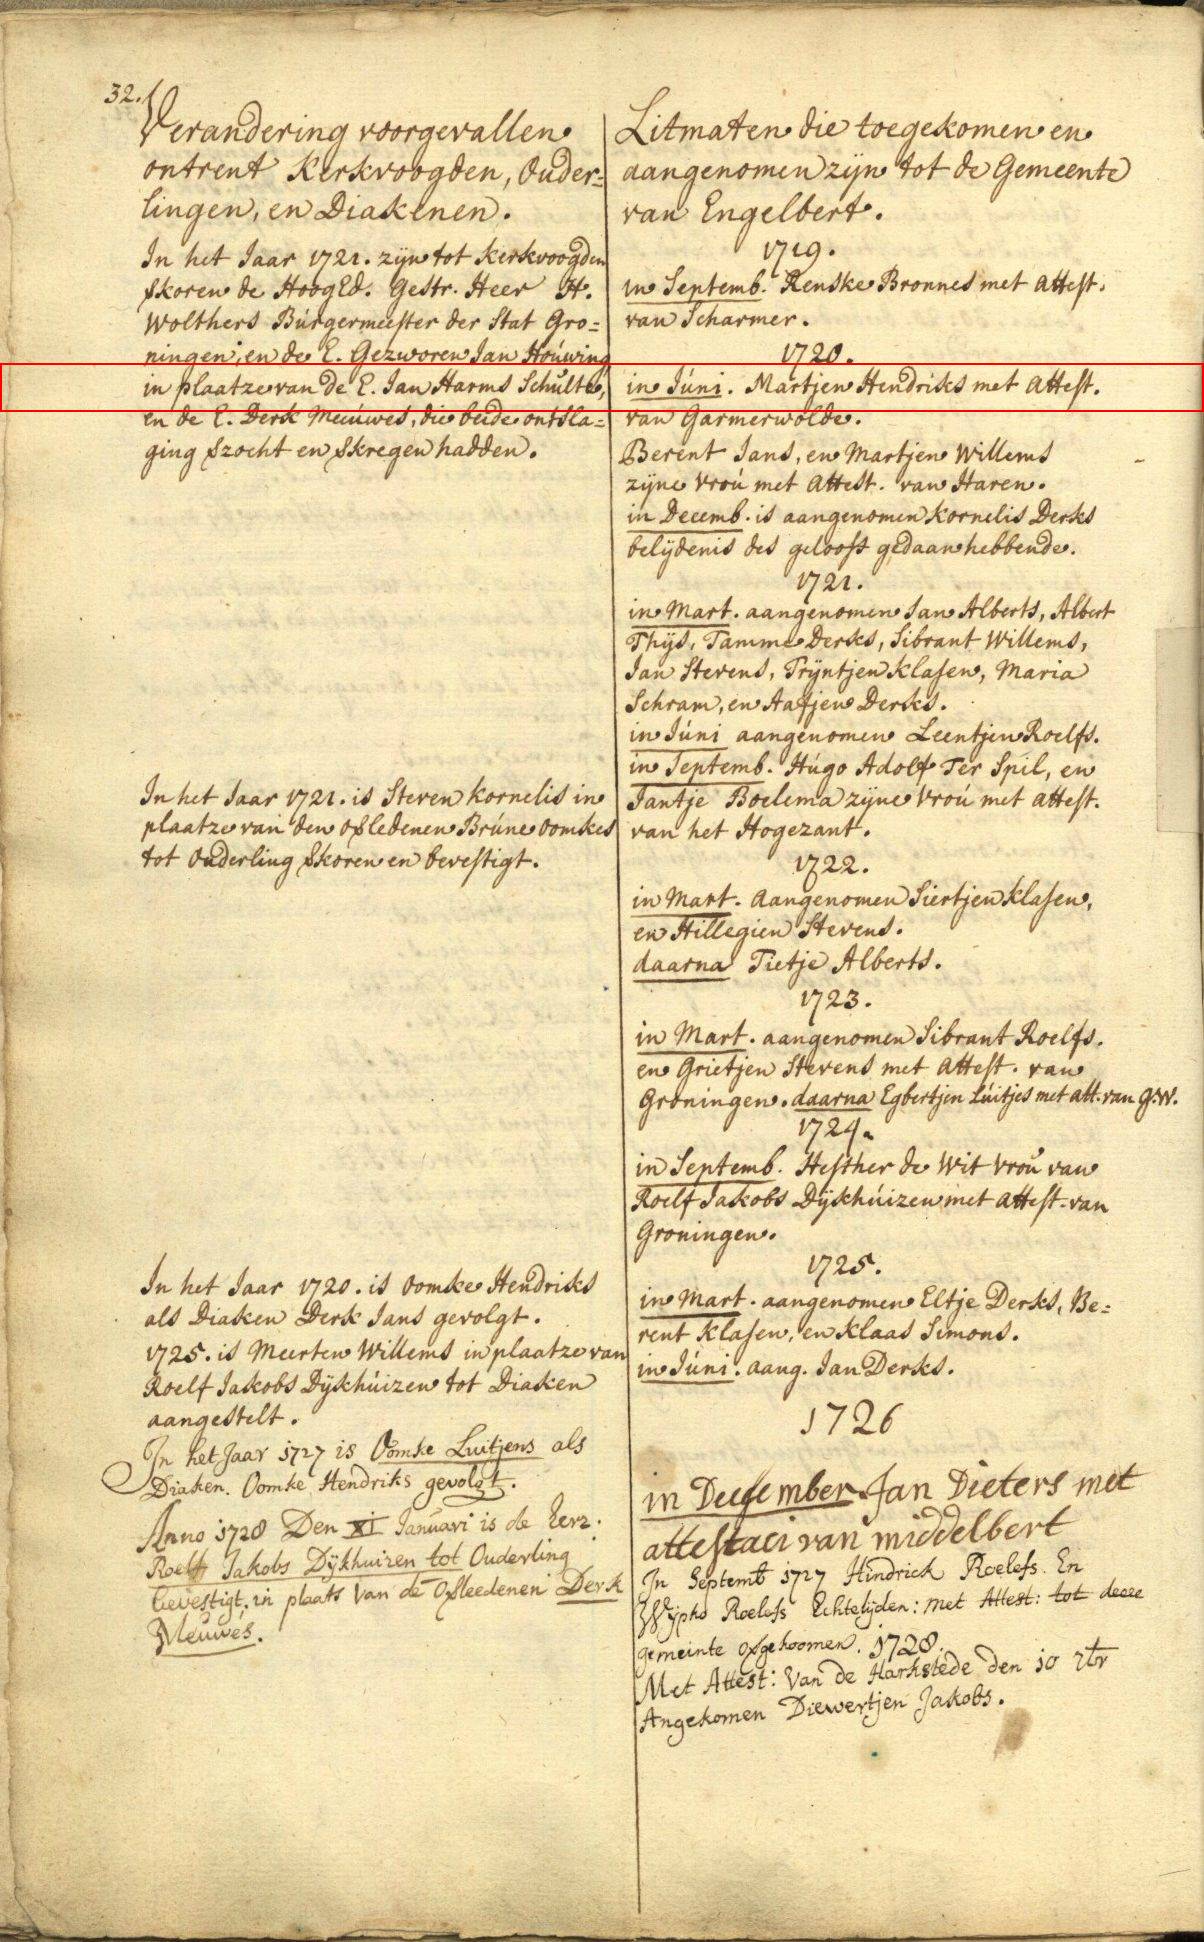 32.
Verandering voorgevallen
ontrent Kerkvoogden, Ouder=
lingen, en Diakenen.
In het Jaar 1721. zijn tot Kerkvoogden
gkoren de HoogEd. Gestr. Heer H.
Wolthers Búrgermeester der Stat Gro=
ningen, en de E. Gezworen Jan Hoúwing
in plaatze van de E. Jan Harms Schulte,
en de E. Derk Meeúwes, die beide ontsla=
ging gzocht en gkregen hadden.
In het Jaar 1721. is Steven Kornelis in
plaatze van den ofledenen Brúne Oomkes
tot Ouderling gkoren en bevestigt.
In het Jaar 1720. is Oomke Hendriks
als Diaken Derk Jans gevolgt.
1725. is Meerten Willems in plaatze van
Roelf Jakobs Dijkhúizen tot Diaken
aangestelt.
In het Jaar 1727 is Oomke Luitjens als
Diaken. Oomke Hendriks gevolgt.
Anno 1728 Den XI Januari is de Eerz.
Roelf Jakobs Dijkhuizen tot Ouderling
bevestigt, in plaats Van de Ofleedenen Derk
Meuwes.
Litmaten die toegekomen en
aangenomen zijn tot de Gemeente
van Engelbert.
1719.
in Septemb. Renske Bronnes met Attest.
van Scharmer.
1720.
in Júni. Martjen Hendriks met Attest.
van Garmerwolde.
Berent Jans, en Martjen Willems
zijne Vroú met Attest. van Haren.
in Decemb. is aangenomen Kornelis Derks
belijdenis des geloofs gedaan hebbende.
1721.
in Mart. aangenomen Jan Alberts, Albert
Thijs, Tamme Derks, Sibrant Willems,
Jan Stevens, Trijntjen Klasen, Maria
Schram, en Aafjen Derks.
in Júni aangenomen Leentjen Roelfs.
in Septemb. Húgo Adolf Ter Spil, en
Jantje Boelema zijne Vroú met attest.
van het Hogezant.
1722.
in Mart. Aangenomen Siertjen Klasen,
en Hillegien Stevens.
daarna Tietje Alberts.
1723.
in Mart. aangenomen Sibrant Roelfs.
en Grietjen Stevens met Attest. van
Groningen. daarna Egbertjen Lúitjes met att. van G.W.
1724.
in Septemb. Hesther de Wit Vroú van
Roelf Jakobs Dijkhúizen met Attest. van
Groningen.
1725.
in Mart. aangenomen Eltje Derks, Be=
rent Klasen, en Klaas Simons.
in Júni. aang. Jan Derks.
1726
in December Jan Dieters met
attestaci van middelbert
In Septemb 1727 Hindrick Roelefs. En
Roelefs Echtelijden: met Attest: tot deeze
gemeinte ofgekoomen. 1728.
Met Attest: Van de Harkstede den 10 7br
Angekomen Diewertjen Jakobs.